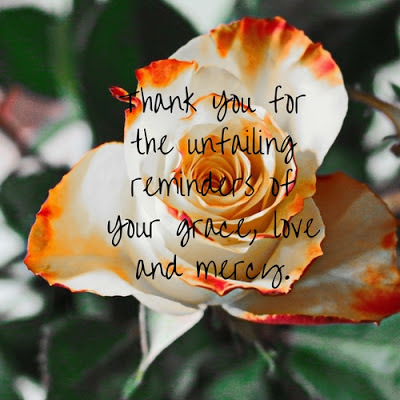 Thank you for
the unfailing
reminders of
your grace, love
and mercy.